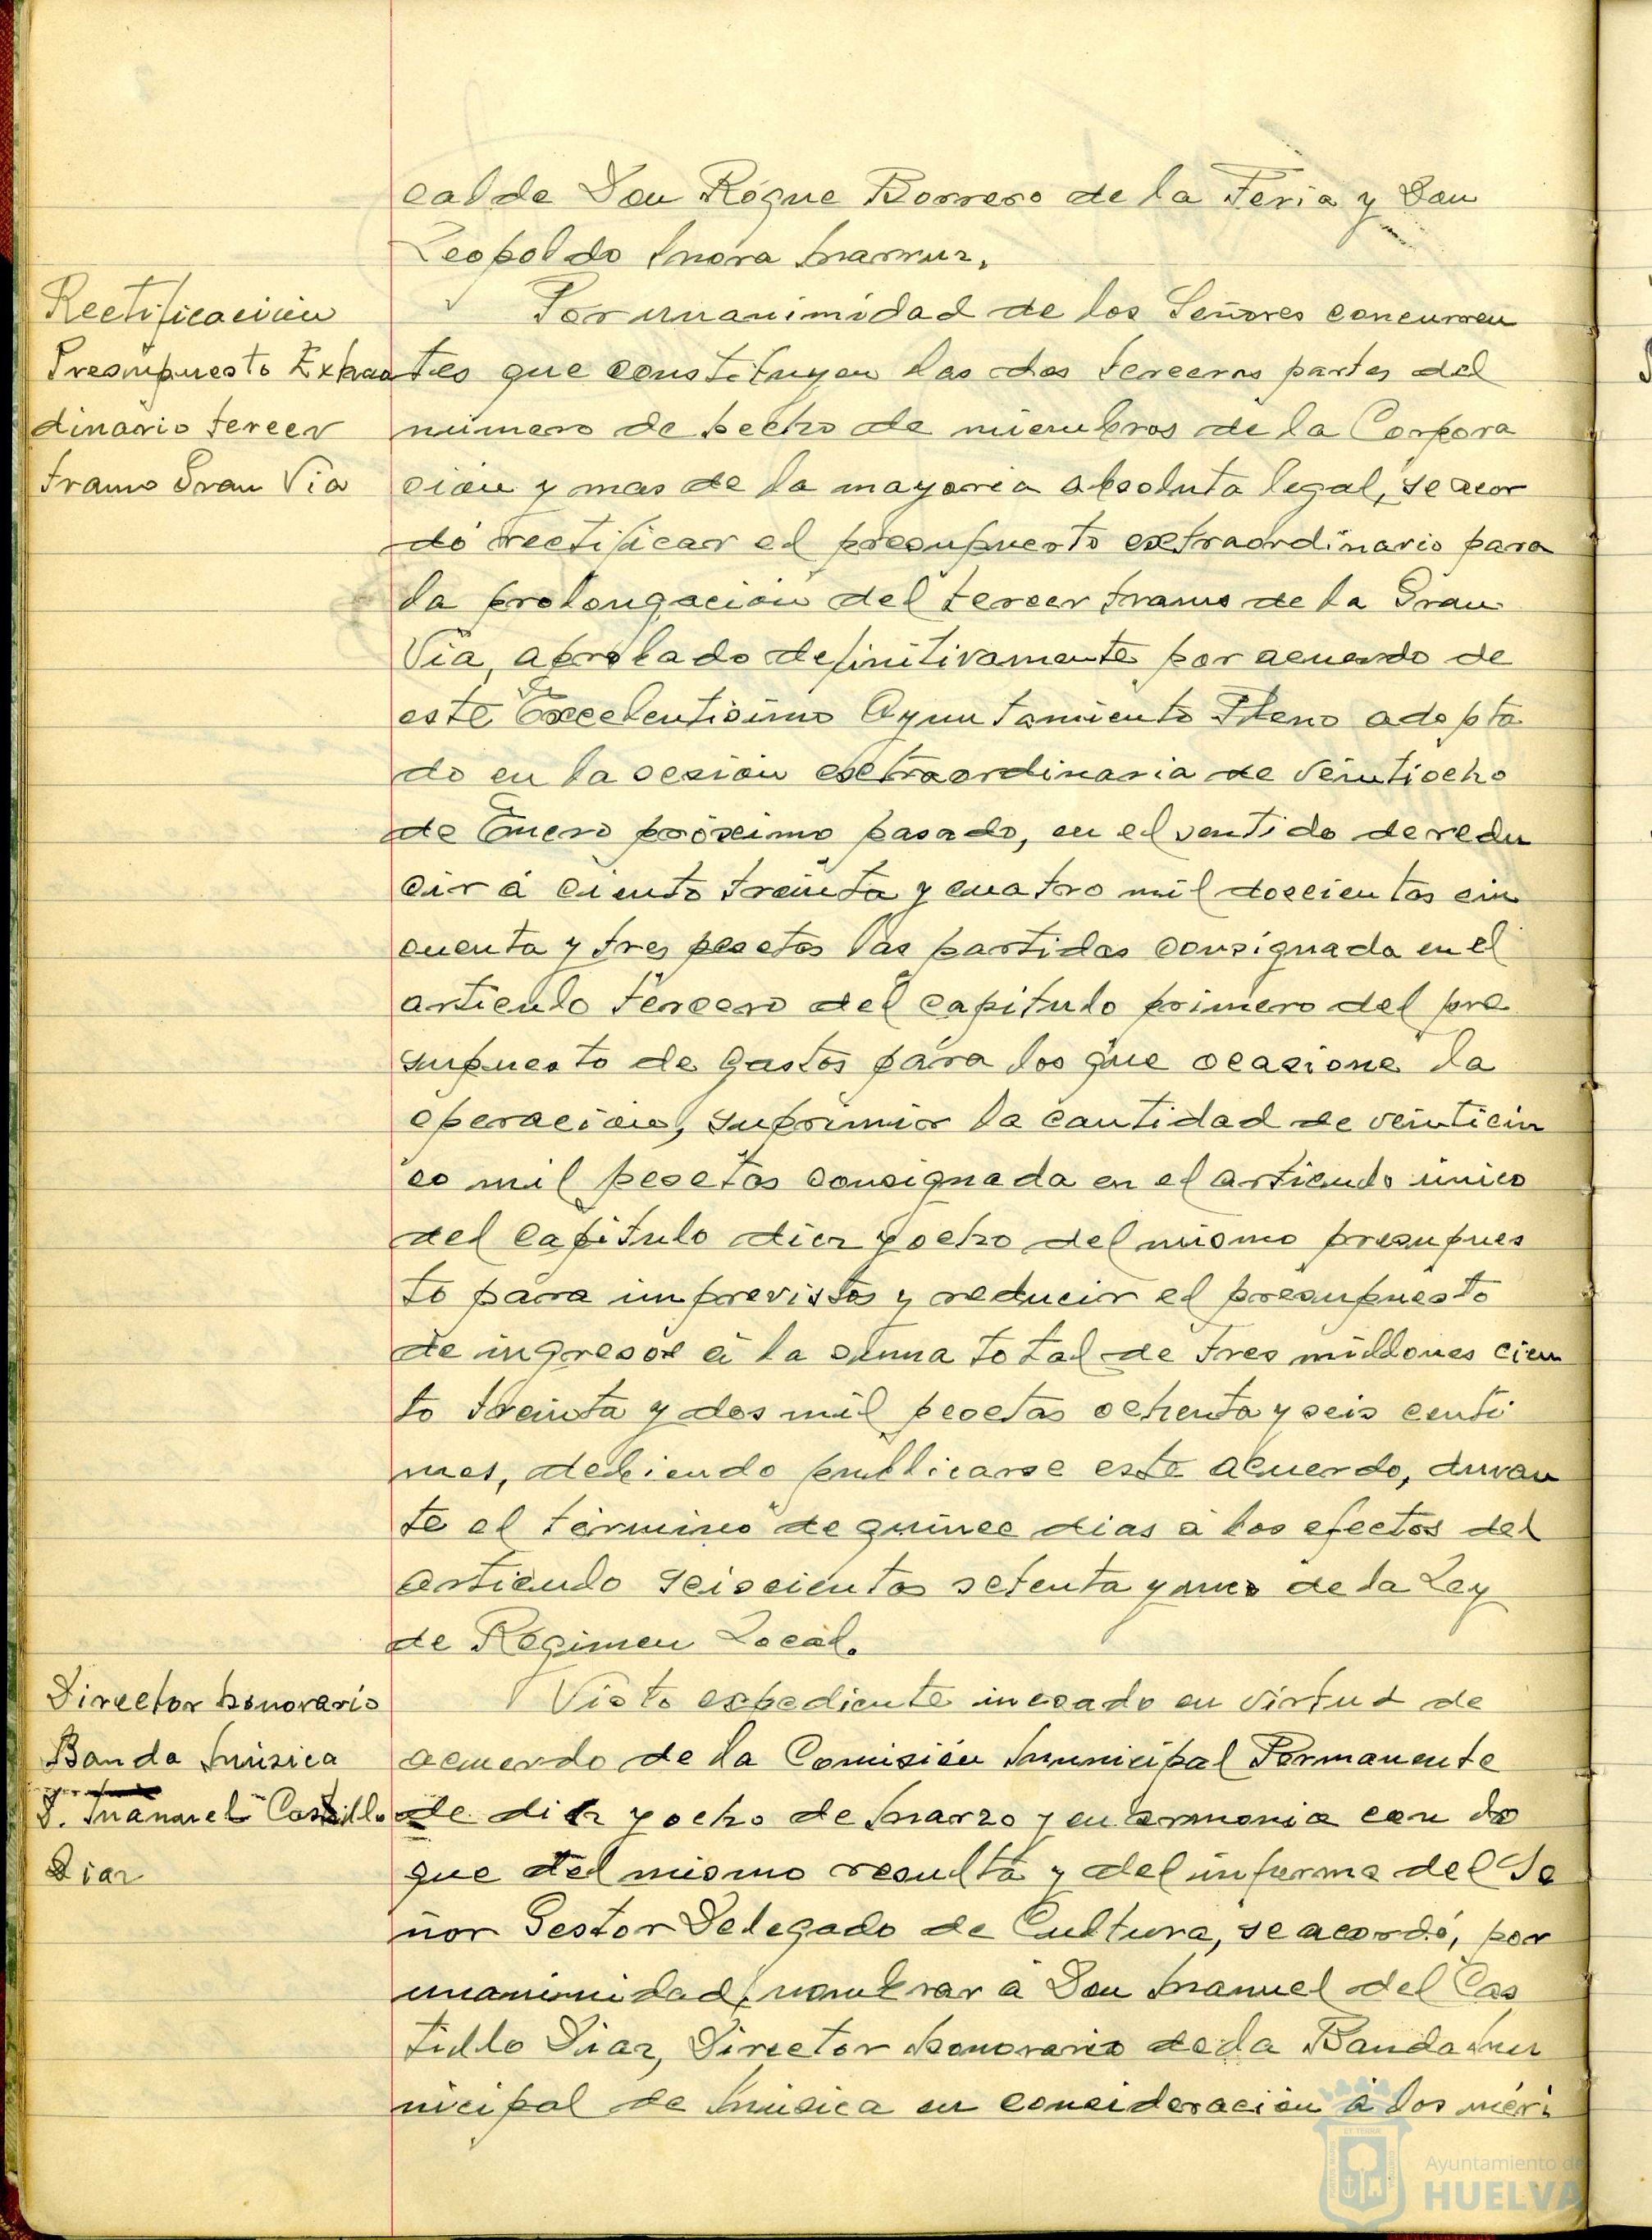 calde Don Roque Borrero de la Feria y Don
Leopoldo Mora
Rectificación
Presupuesto Extraor
dinario tercer
tramo Gran Via
Por unanimidad de los Señores concurren
tes que constituyen las dos terceras partes del
número de hecho de miembros de la Corpora
ción y mas de la mayoria absoluta legal, se acor
dó rectificar el presupuesto extraordinario para
la prolongación del tercer tramo de la Gran
Via, aprobado definitivamente por acuerdo de
este Excelentisimo Ayuntamiento Pleno adopta
do en la sesion extraordinaria de veintiocho
de Enero próximo pasado, en el sentido de redu
cir á ciento treinta y cuatro mil doscientas cin
cuenta y tres pesetas las partidas consignada en el
articulo tercero del capitulo primero del pre
supuesto de gastos para los que ocasione la
operación, suprimir la cantidad de veinticin
co mil pesetas consignada en el articulo único
del capitulo diez y ocho del mismo presupues
to para imprevistos y reducir el presupuesto
de ingresos á la suma total de tres millones cien
to treinta y dos mil pesetas ochenta y seis centi
mos, debiendo publicarse este acuerdo, duran
te el término de quince dias á los efectos del
articulo seiscientos setenta y uno de la Ley
de Régimen Local.
Director honorario
Banda Música
D. Manuel Castillo
Diaz
Visto expediente incoado en virtud de
acuerdo de la Comisión Municipal Permanente
de diez y ocho de Marzo y en armonia con lo
que del mismo resulta y del informe del Se
ñor Gestor Delegado de Cultura, se acordó, por
unanimidad, nombrar á Don Manuel del Cas
tillo Diaz, Director honorario de la Banda Mu
nicipal de Música en consideración á los méri
Ayuntamiento de
HUELVA